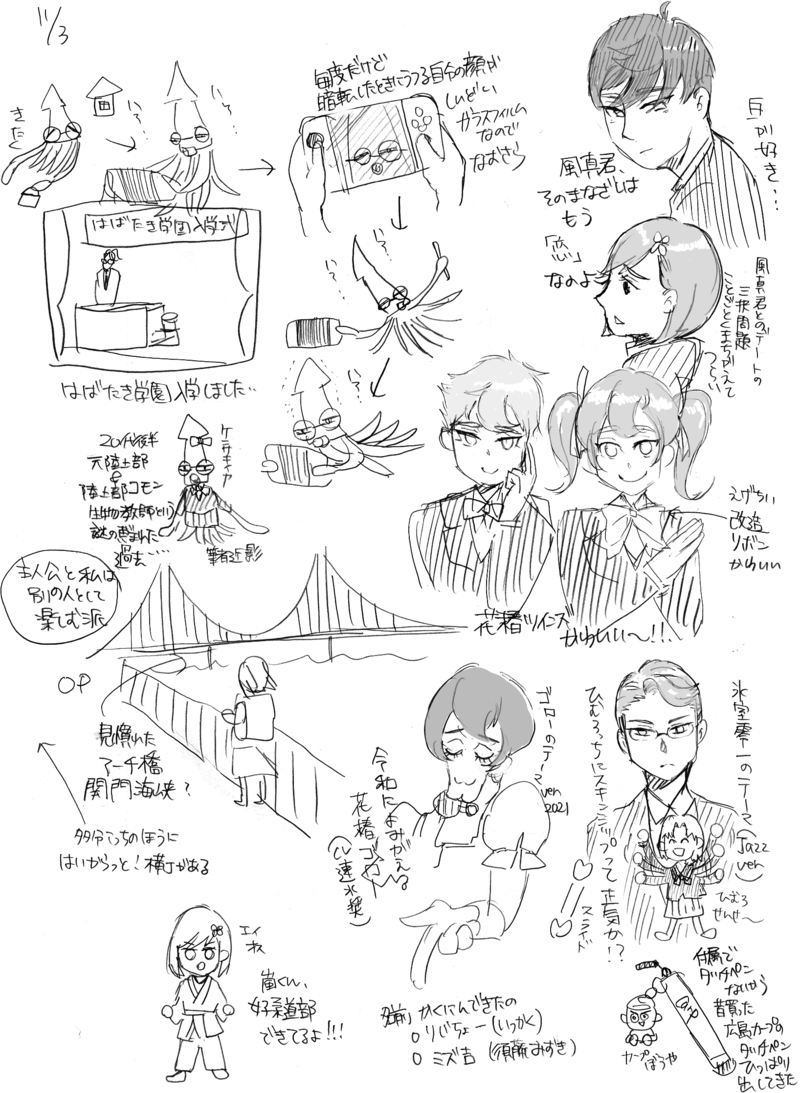 11/3
きた
毎度だけど
暗転したときにうつる自分の顔が
しんどい
ガラスフィルム
なので
なおさら
目が好き…
風真君、
そのまなざしは
もう
「恋」
なのよ
風真君とのデートの
三択問題
ことごとくまちがえて
つらい
はばたき学園入学式
はばたき学園入学しました…
20代後半
元陸上部
陸上部コモン
生物教師という
謎の恵まれた
過去…
筆者近影
えげつい
改造
リボン
かわいい
花椿ツインズ
かわいい〜!!
主人公と私は
別の人として
楽しむ派
OP
見慣れた
アーチ橋
関門海峡?
多分こっちのほうに
はいからっと!横丁がある
ゴローのテーマ
ver
2021
令和によみがえる
花椿ゴロー
(CV速水奨)
氷室零一のテーマ
(Jazz
ver)
ひむろっちにスキンシップって正気か!?
スライド
ひむろ
せんせ〜
嵐くん、
好柔道部
できてるよ!!!
かくにんできたの
○ りじちょー(いっかく)
○ ミズ吉 (須藤みずき)
付属で
タッチペン
ないから
昔買った
広島カープの
タッチペン
ひっぱり
出してきた
Carp
カープ
ぼうや